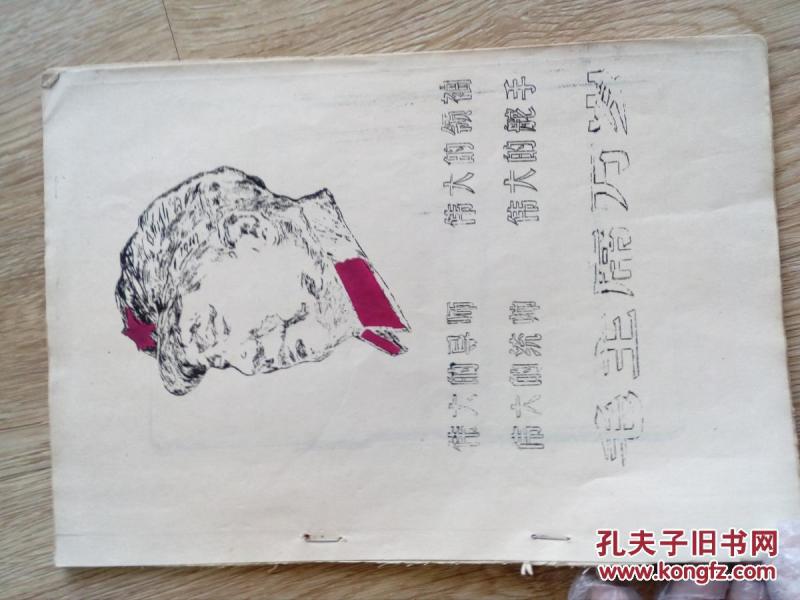 伟大的导师 伟大的领袖
伟大的统帅 伟大的舵手
毛主席万岁
孔夫子旧书网
www.kongfz.com